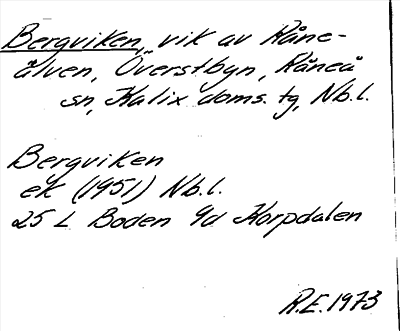 Bergviken, vik av Råne-
älven, Överstbyn, Råneå
sn, Kalix doms. tg, Nb.l.
Bergviken
ek (1951) Nb.l.
25 L Boden 9d Korpdalen
R.E. 1973